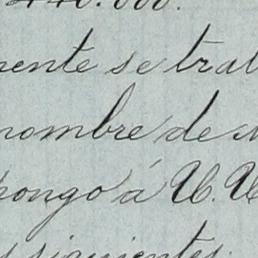 440.000.
mente se trat
nombre de
pongo á U. U
siguientes.